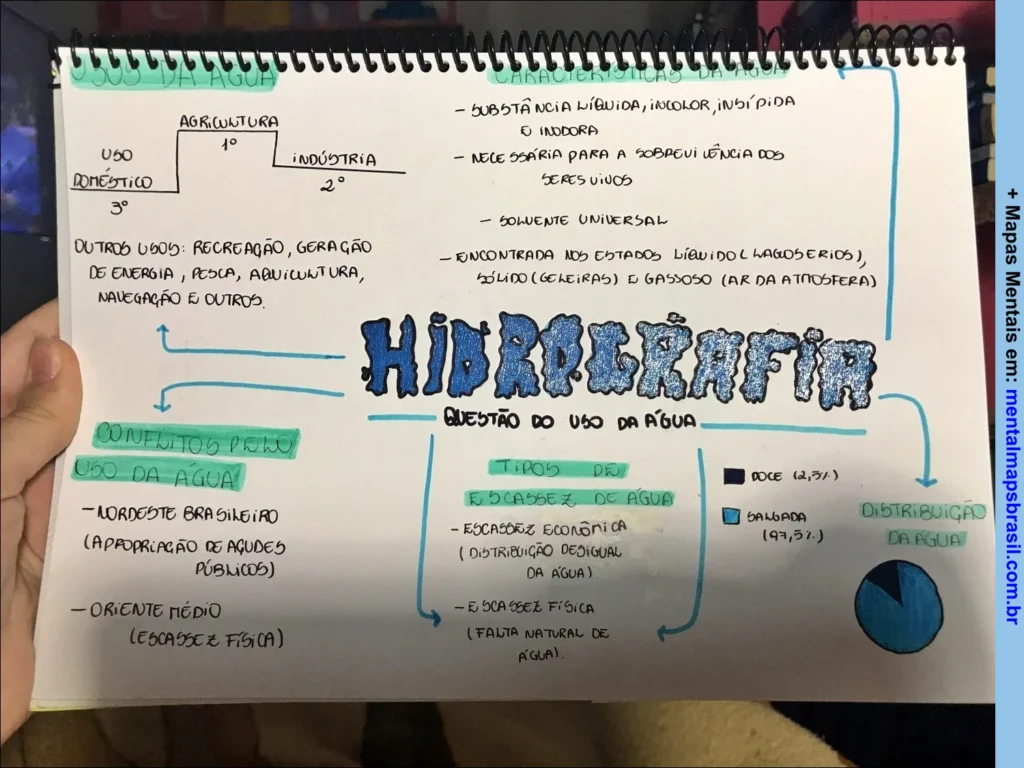 USOS DA ÁGUA
AGRICULTURA
1º
USO
DOMÉSTICO
3º
INDÚSTRIA
2º
OUTROS USOS: RECREAÇÃO, GERAÇÃO
DE ENERGIA, PESCA, AQUICULTURA,
NAVEGAÇÃO E OUTROS.
CARACTERÍSTICAS DA ÁGUA
- SUBSTÂNCIA LÍQUIDA, INCOLOR, INSÍPIDA
E INODORA
- NECESSÁRIA PARA A SOBREVIVÊNCIA DOS
SERES VIVOS
- SOLVENTE UNIVERSAL
- ENCONTRADA NOS ESTADOS LÍQUIDO (LAGOS E RIOS),
SÓLIDO (GELEIRAS) E GASSOSO (AR DA ATMOSFERA)
HIDROGRAFIA
QUESTÃO DO USO DA ÁGUA
CONFLITOS PELO
USO DA ÁGUA
- NORDESTE BRASILEIRO
(APROPRIAÇÃO DE AÇUDES
PÚBLICOS)
- ORIENTE MÉDIO
(ESCASSEZ FÍSICA)
TIPOS DE
ESCASSEZ DE ÁGUA
- ESCASSEZ ECONÔMICA
(DISTRIBUIÇÃO DESIGUAL
DA ÁGUA)
- ESCASSEZ FÍSICA
(FALTA NATURAL DE
ÁGUA).
DOCE (2,5%)
SALGADA
(97,5%)
DISTRIBUIÇÃO
DA ÁGUA
+ Mapas Mentais em: mentalmapsbrasil.com.br